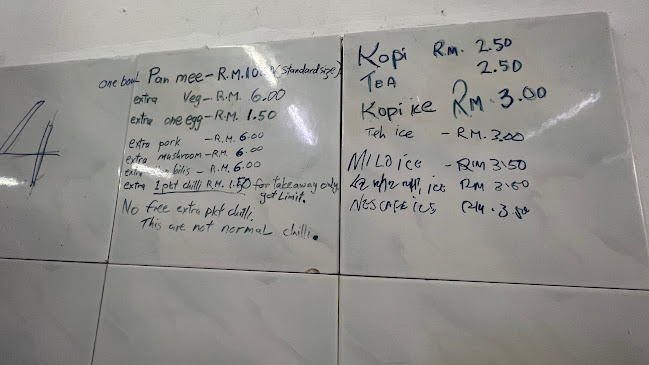 4
one bowl Pan mee - R.M.10. (standard size)
extra Veg - R.M. 6.00
extra one egg - R.M. 1.50
extra pork - R.M. 6.00
extra mushroom - R.M. 6.00
extra bilis - R.M. 6.00
extra 1 pkt chilli R.M. 1.50 for take away only
got Limit.
No free extra pkt chilli.
This are not normal chilli.
Kopi RM. 2.50
TeA 2.50
Kopi ice RM. 3.00
Teh ice - RM. 3.00
MILO ice - RM 3.50
ice RM 3.50
NESCAFE ICE RM. 3.50